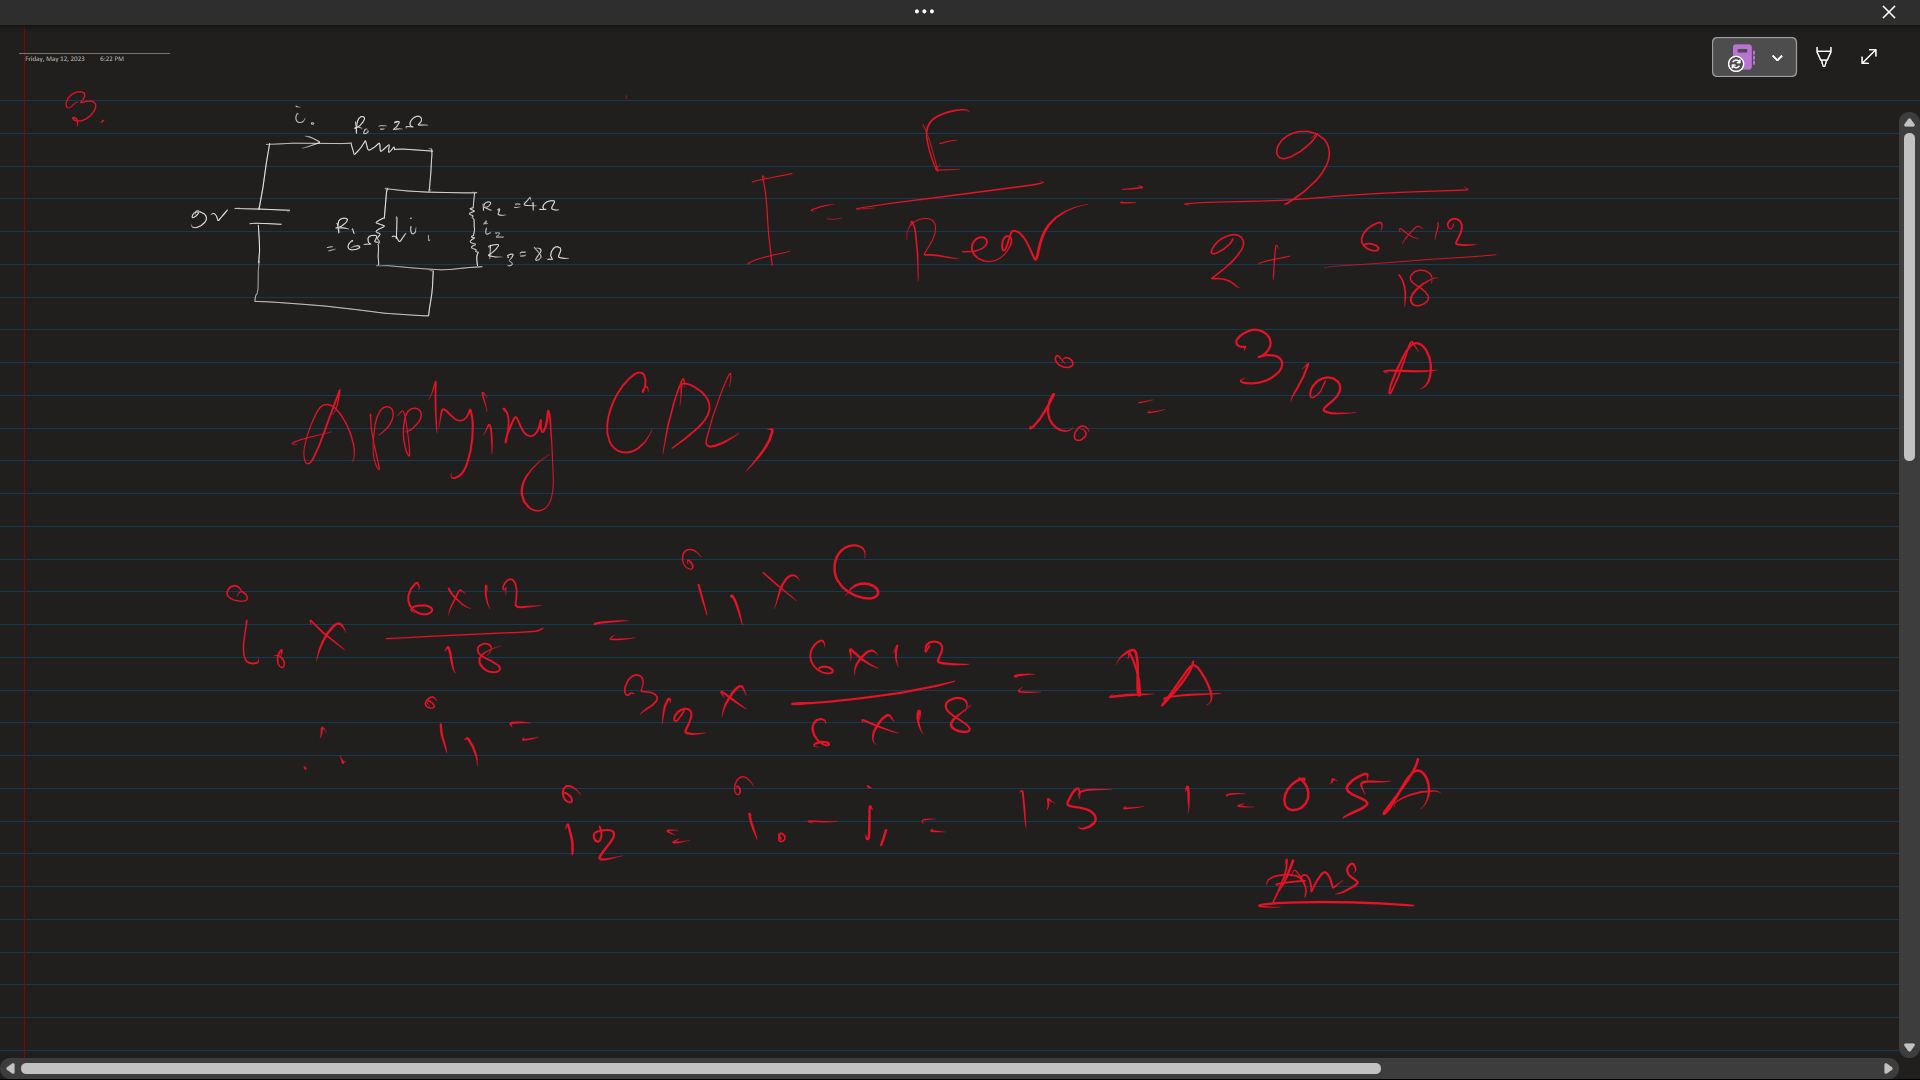 Friday, May 12, 2023 6:22 PM
3.
i₀
R₀ = 2Ω
9V
R₁ = 6Ω
i₁
R₂ = 4Ω
i₂
R₃ = 8Ω
I = E / Rev = 9 / (2 + (6 × 12) / 18)
i₀ = 3/2 A
Applying CDL,
i₀ × (6 × 12) / 18 = i₁ × 6
∴ i₁ = 3/2 × (6 × 12) / (6 × 18) = 1A
i2 = i₀ - i₁ = 1.5 - 1 = 0.5A
Ans